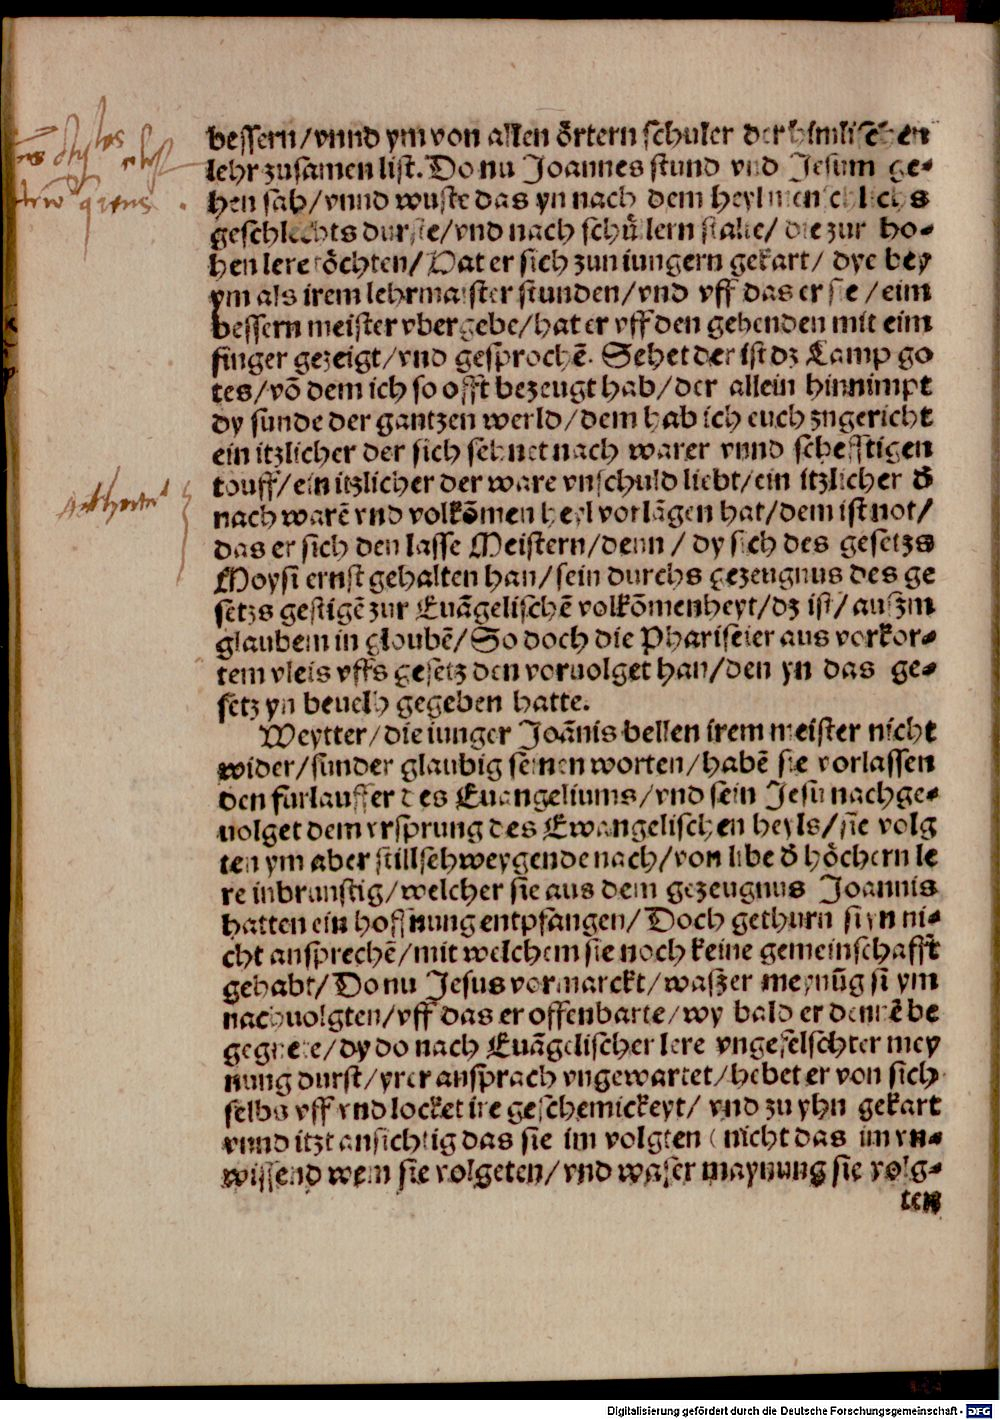 bessern/vnnd ym von allen örtern schuler der himlischen
lehr zusamen list. Do nu Joannes stund vnd Jesum ge-
hen sah/vnnd wuste das yn nach dem heyl menschlichs
geschlechts durste/vnd nach schülern stalte/ die zur ho-
hen lere töchten/ Hat er sich zun iungern gekart/ dye bey
ym als irem lehrmaister stunden/vnd vff das er sie /eim
bessern meister vbergebe/hat er vff den gehenden mit eim
finger gezeigt/vnd gesprochē. Sehet der ist dz Lamp go
tes/vō dem ich so offt bezeugt hab/der allein hinnimpt
dy sunde der gantzen werld/dem hab ich euch zugericht
ein itzlicher der sich sehnet nach warer vnnd schefftigen
touff/ein itzlicher der ware vnschuld liebt/ein itzlicher d̄
nach warē vnd volkōmen heyl vorlāgen hat/dem ist not/
das er sich den lasse Meistern/denn / dy sich des gesetzs
Moysi ernst gehalten han/sein durchs gezeugnus des ge
setzs gestigē zur Euāgelischē volkōmenheyt/dz ist/ auszm
glaubem in gloubē/So doch die Phariseier aus vorkor-
tem vleis vffs gesetz den voruolget han/den yn das ge-
setz yn beuelh gegeben hatte.
Weytter/die iunger Joānis bellen irem meister nicht
wider/sunder glaubig seinen worten/habē sie vorlassen
den furlauffer des Euangeliums/vnd sein Jesu nachge-
uolget dem vrsprung des Ewangelischen heyls/sie volg
ten ym aber stillschweygende nach/von libe d̄ höchern le
re inbrunstig/welcher sie aus dem gezeugnus Joannis
hatten ein hoffnung entpfangen/Doch gethurn si yn ni-
cht ansprechē/mit welchem sie noch keine gemeinschafft
gehabt/Do nu Jesus vormarckt/waszer meynūg si ym
nachuolgten/vff das er offenbarte/wy bald er dennē be
gegnete/dy do nach Euāgelischer lere vngefelschter mey
nung durst/yrer ansprach vngewartet/hebet er von sich
selbs vff vnd locket ire geschemickeyt/ vnd zu yhn gekart
vnnd itzt ansichtig das sie im volgten ( nicht das im vn-
wissend wem sie volgeten/vnd waser maynung sie volg-
ten
Digitalisierung gefördert durch die Deutsche Forschungsgemeinschaft - DFG